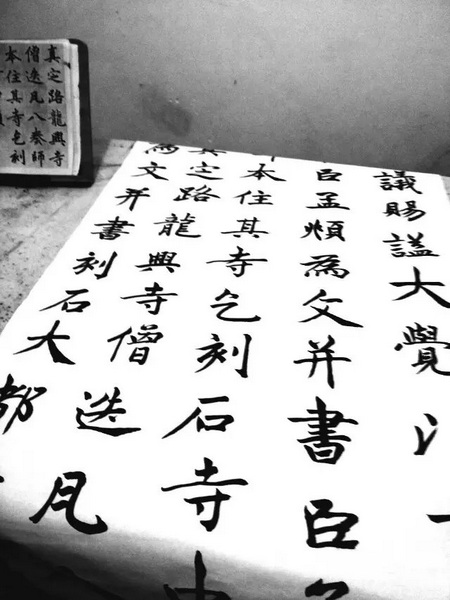 議賜謚大覺
臣孟頫為文并書臣
本住其寺乞刻石寺
真定路龍興寺僧迭凡
為文并書刻石大都
真定路龍興寺
僧迭凡八奏師
本住其寺乞刻